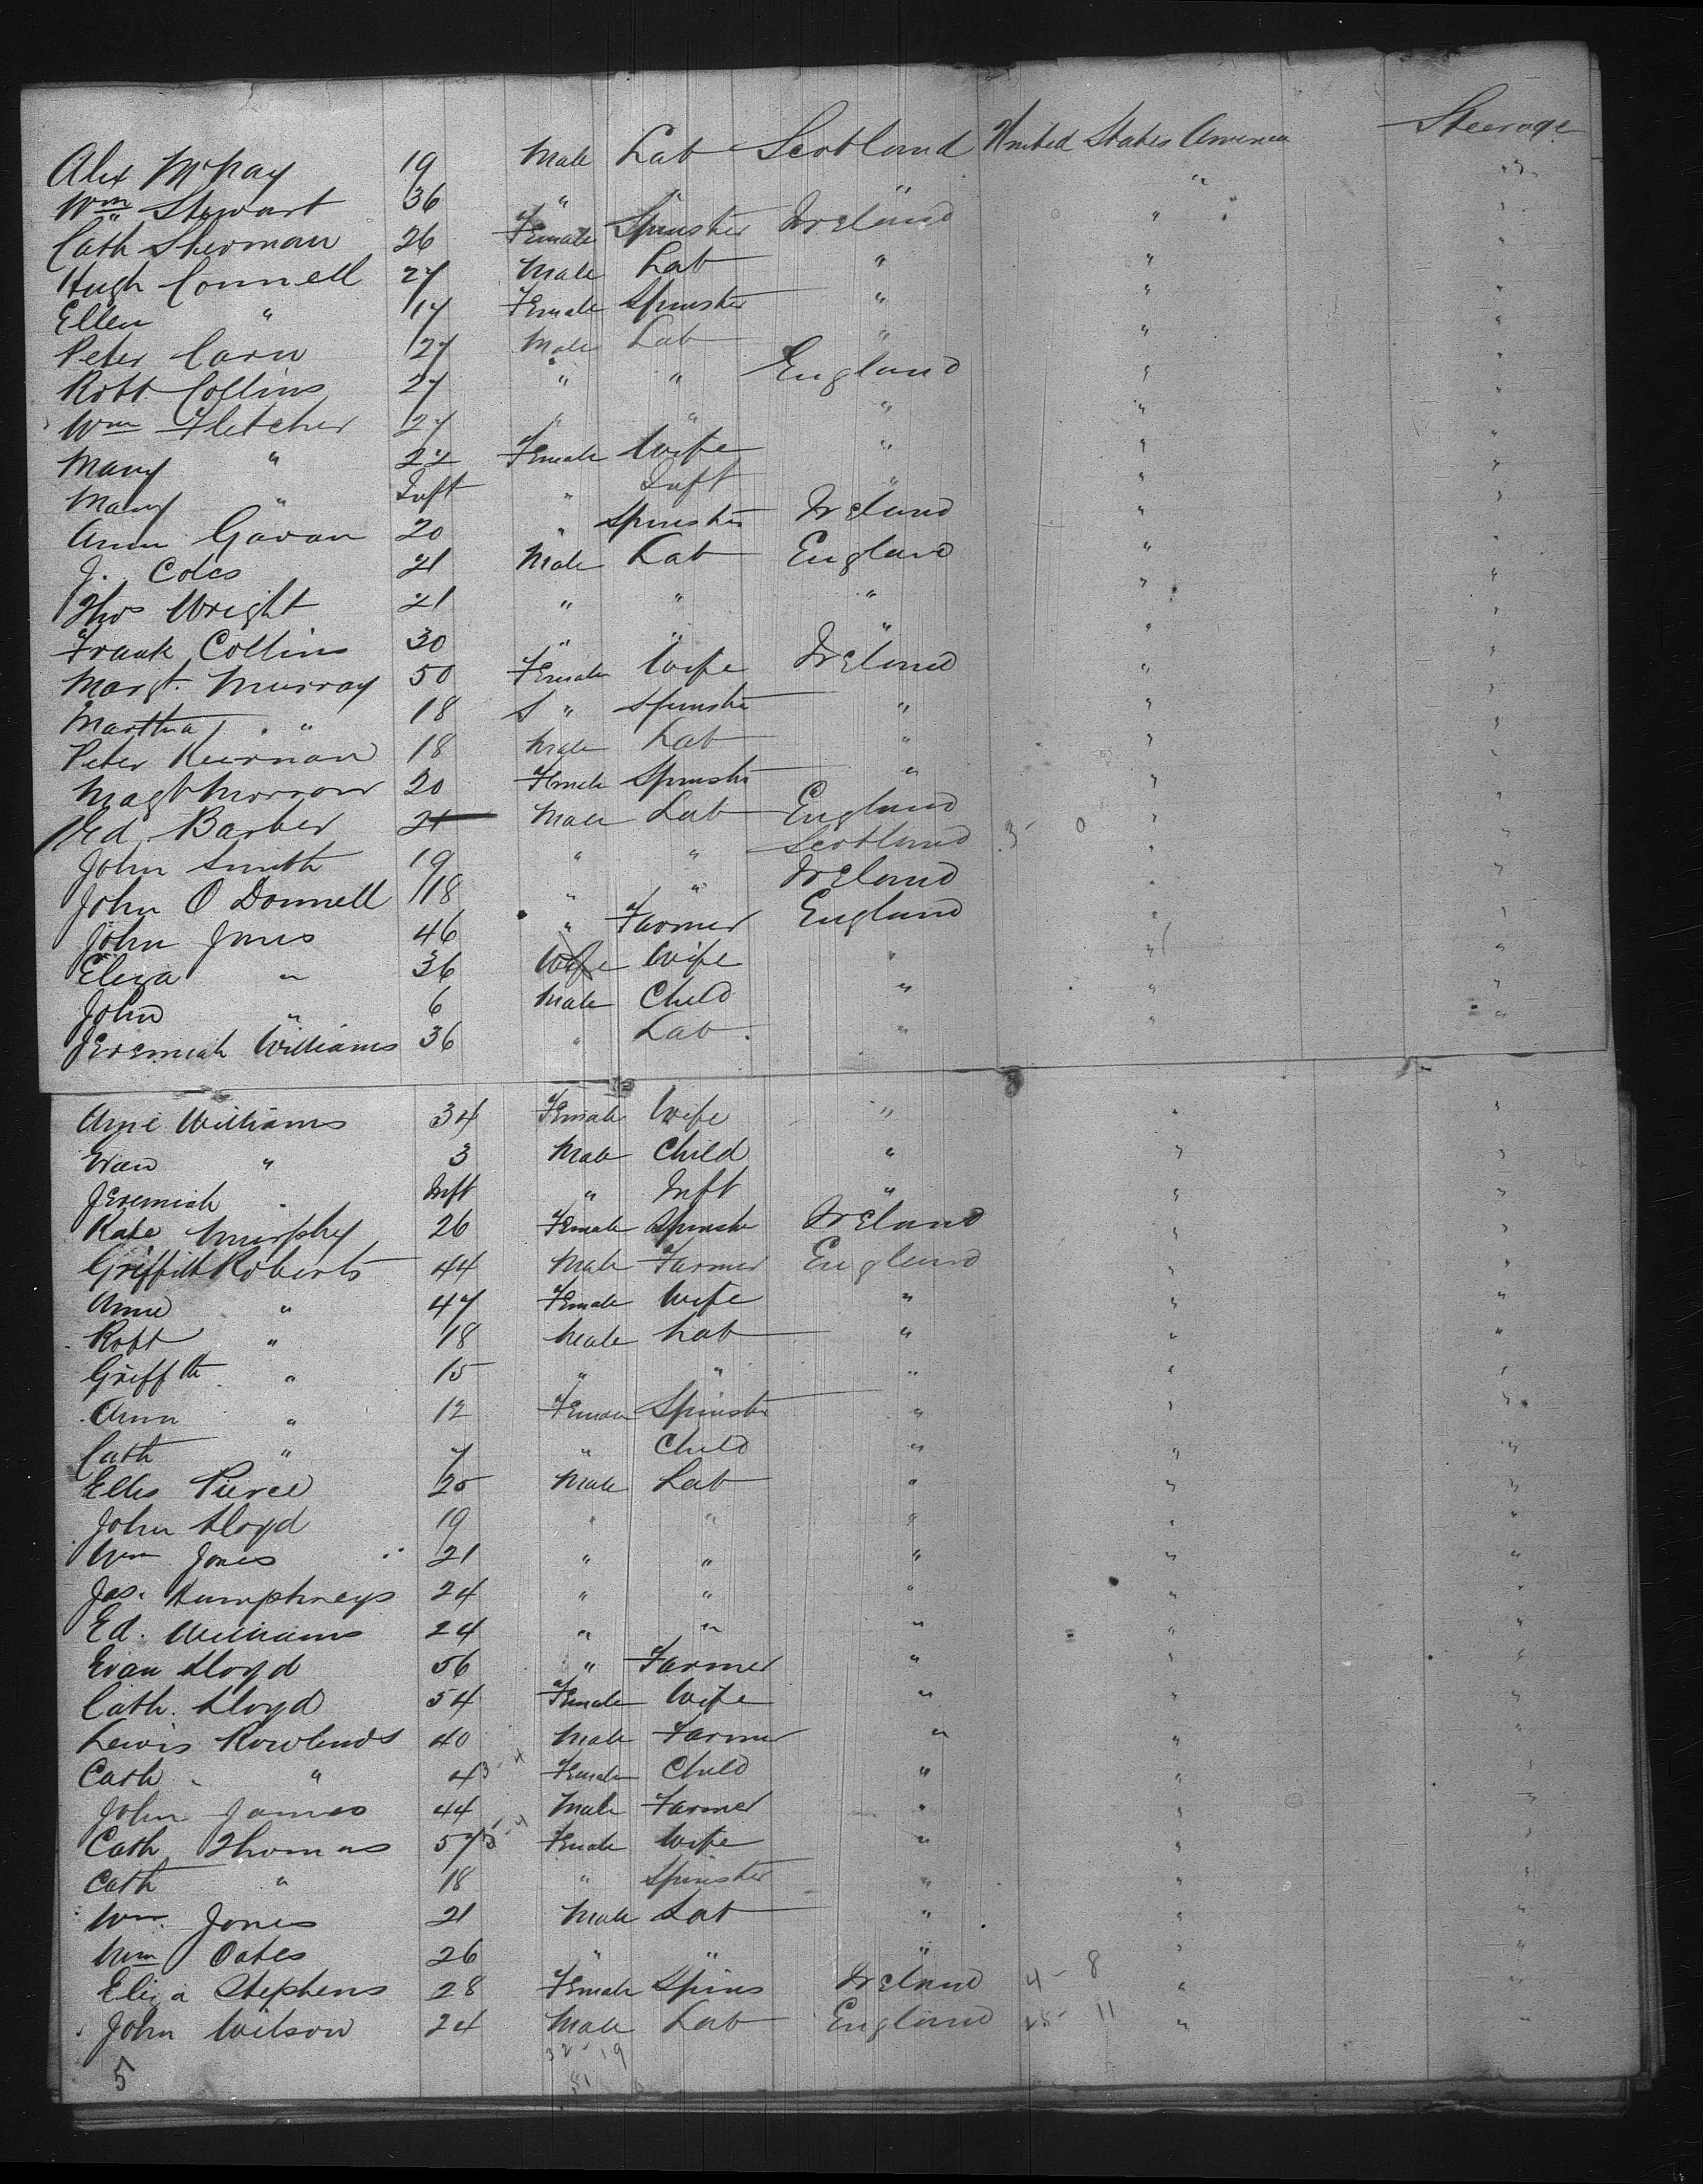 Alex McKay 19 Male Lab Scotland United States America Steerage
Wm Stewart 36 " " " " "
Cath Sherman 26 Female Spinster Ireland " "
Hugh Connell 27 Male Lab " " "
Ellen " 17 Female Spinster " " "
Peter Carn 27 Male Lab " " "
Robt Collins 27 " " England " "
Wm Fletcher 27 " " " " "
Mary " 22 Female Wife " " "
Mary " Inft " Inft " " "
Ann Gavan 20 " Spinster Ireland " "
J. Coles 21 Male Lab England " "
Thos Wright 21 " " " " "
Frank Collins 30 " " " " "
Margt. Murray 50 Female Wife Ireland " "
Martha " 18 S " Spinster " " "
Peter Keernan 18 Male Lab " " "
Magt Morrow 20 Female Spinster " " "
Ed. Barber 21 Male Lab England " "
John Smith 19 " " Scotland 3 - 0 " "
John O Donnell 18 " " Ireland " "
John Jones 46 " Farmer England " "
Eliza " 36 Wife Wife " " "
John " 6 Male Child " " "
Jeremiah Williams 36 " Lab. " " "
Ane Williams 34 Female Wife " " "
Evan " 3 Male Child " " "
Jeremiah " Inft " Inft " " "
Kate Murphy 26 Female Spinster Ireland " "
Griffith Roberts 44 Male Farmer England " "
Anne " 47 Female Wife " " "
Robt " 18 Male Lab " " "
Griffth " 15 " " " " "
Ann " 12 Female Spinster " " "
Cath " 7 " Child " " "
Elles Pierce 25 Male Lab " " "
John Lloyd 19 " " " " "
Wm Jones 21 " " " " "
Jas. Humphreys 24 " " " " "
Ed. Williams 24 " " " " "
Evan Lloyd 56 " Farmer " " "
Cath. Lloyd 54 Female Wife " " "
Lewis Rowlands 40 Male Farmer " " "
Cath. " 4 3 - 4 Female Child " " "
John James 44 Male Farmer " " "
Cath Thomas 57 Female Wife " " "
Cath " 18 " Spinster " " "
Wm. Jones 21 Male Lab " " "
Wm Oates 26 " " " " "
Eliza Stephens 28 Female Spins Ireland 4 - 8 " "
John Wilson 24 Male Lab England 25 - 11 " "
32 - 19
5 51